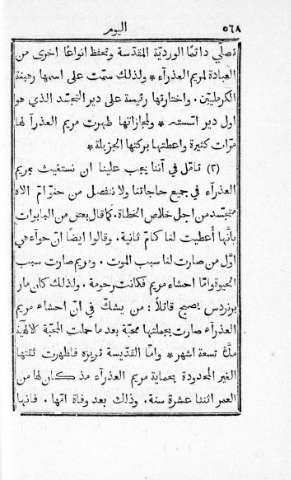 ٥٦٨ اليوم
تصلّي دائمًا الورديّة المقدّسة وتحفظ انواعًا اخرى من
العبادة لمريم العذرآء * ولذلك سمّت على اسمها رهبنة
الكرمليّين. واختارتها رئيسة على دير التجسّد الذي هو
اول دير اتسسته * ولمجازاتها ظهرت مريم العذرآ لها
مرّات كثيرة واعطتها بركتها الجزيلة *
(٢) تامّل في أننا يجب علينا ان نستغيث بمريم
العذرآء في جميع حاجاتنا ولا ننفصل من
متجسّد من اجل خلاص الخطاة. كما قال بعض من البابوات
بأنّها أُعطيت لنا كأمّ ثانية. وقالوا ايضًا انّ حوآء هي
اوّل من صارت لنا سبب الموت. ومريم صارت سبب
الحيوة وامّا احشاء مريم فكانت رحومة. ولذلك كان مار
برنردس يصيح قائلاً: من يشكّ في انّ احشاء مريم
العذرآء صارت بجملتها محبّة بعد ما حملت المحبّة كالآهيّة
مدّة تسعة اشهر * وامّا القدّيسة تريزه فاظهرت ثقتها
الغير المحدودة بحماية مريم العذرآء مذ كان لها من
العمر اثنتا عشرة سنة. وذلك بعد وفاة امّها. فانها